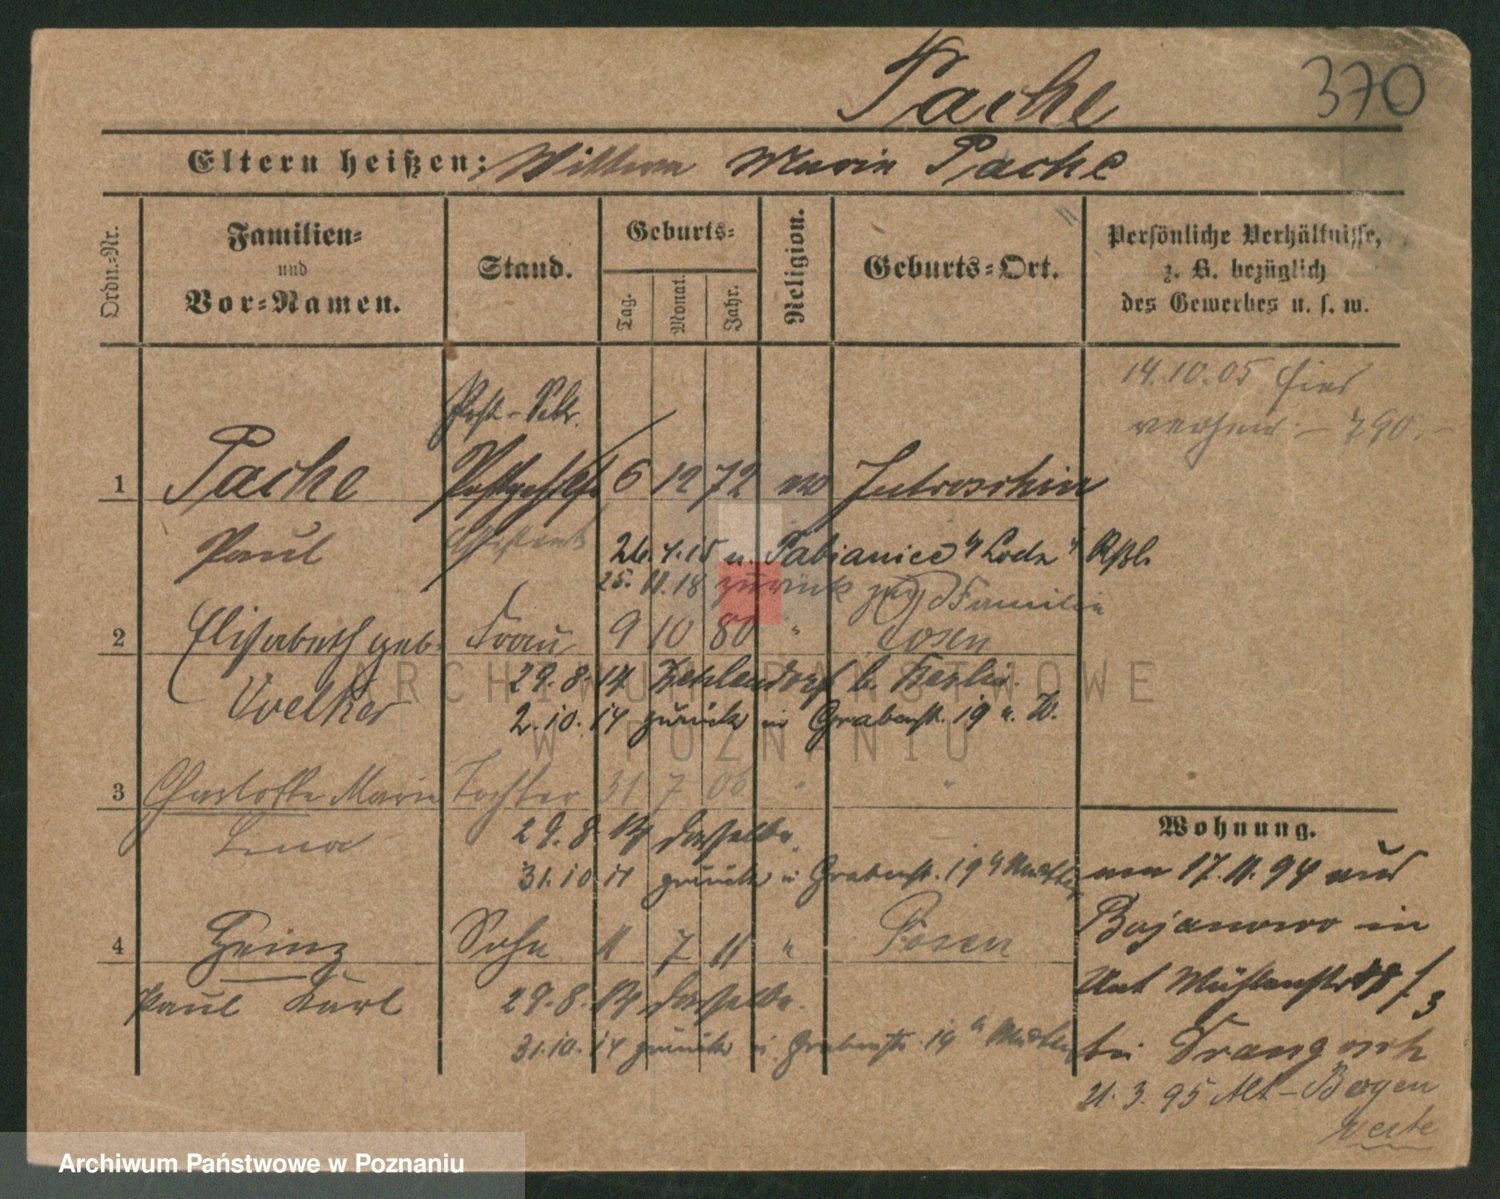 Pache 370
Eltern heißen: Wittwe Marie Pache
Ordn.-Nr.
Familien-
und
Vor-Namen.
Stand.
Geburts-
Tag.
Monat.
Jahr.
Religion.
Geburts-Ort.
Persönliche Verhältnisse,
z. B. bezüglich
des Gewerbes u. s. w.
14.10.05 hier
verheir. – 790. –
Post-Sekr.
1 Pache 6 12 72 ev Jutroschin
Paul Assistent 26.4.15 n. Pabianice b/ Lodz Rßl.
25.11.18 zurück zur Familie
2 Elisabeth geb. Frau 9 10 80 " Posen
Voelker 29.8.14 Zehlendorf b. Berlin
2.10.14 zurück in Grabenstr. 19 u. W.
3 Charlotte Marie Tochter 31 7 06 " "
Lena 29.8.14 dasselbe.
31.10.14 zurück n Grabenstr. 19 b/ Mutter
4 Heinz Sohn 11 7 11 " Posen
Paul Karl 29.8.14 dasselbe.
31.10.14 zurück n. Grabenstr. 19 b/ Mutter
Wohnung.
am 17.11.94 aus
Bojanowo in
Mühlenstr
3
bei
21.3.95 Alt-Bogen
ARCHIWUM PAŃSTWOWE
W POZNANIU
Archiwum Państwowe w Poznaniu